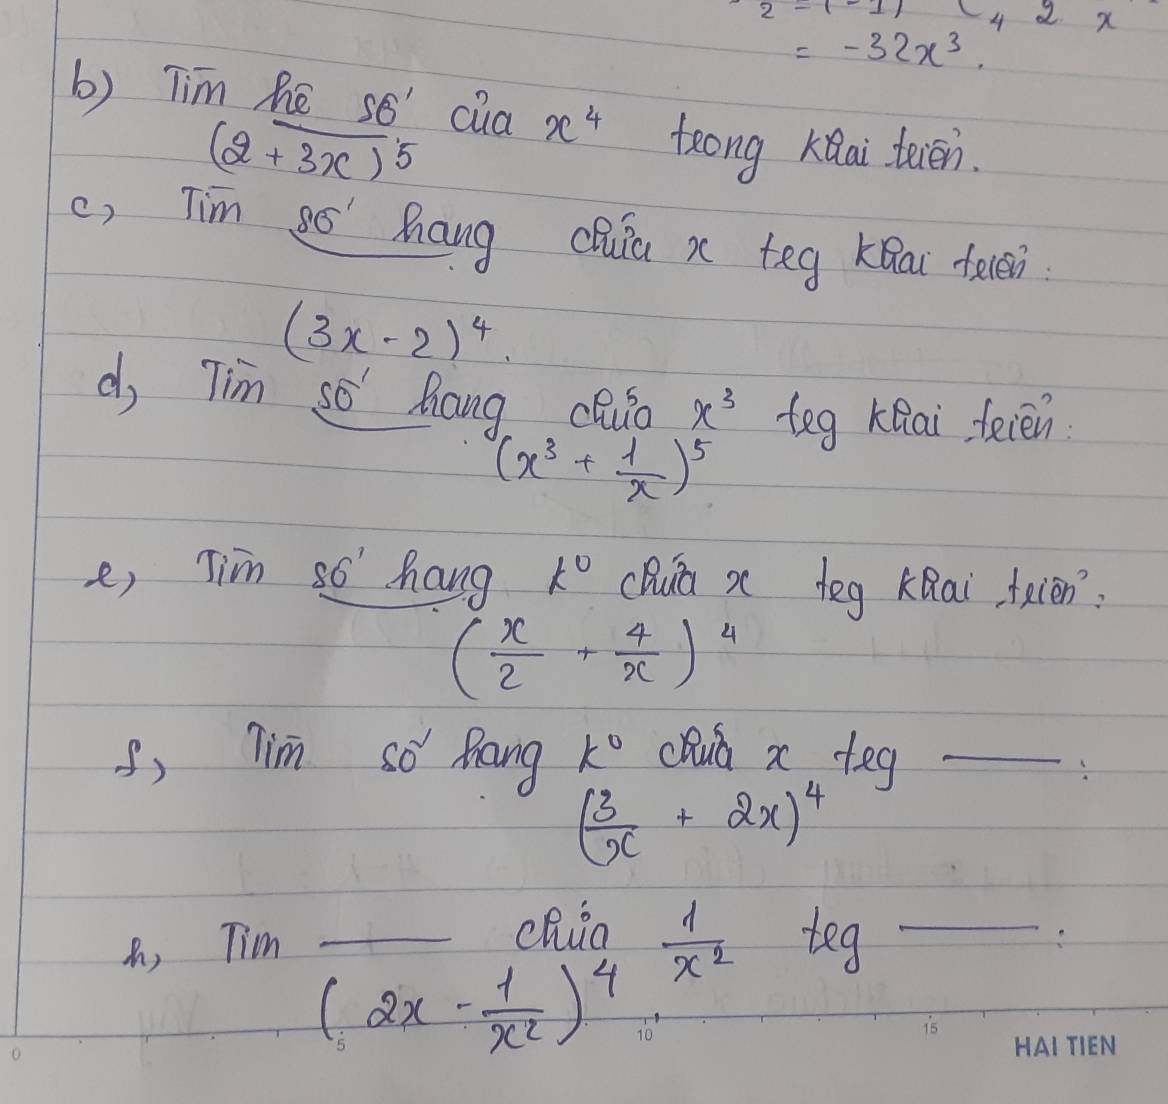 2 = (-1) C 4 2 x
= -32x³.
b) Tìm hệ số của x⁴ trong khai triển.
(2 + 3x)⁵
c, Tìm số hạng chứa x trg khai triển:
(3x - 2)⁴.
d, Tìm số hạng chứa x³ trg khai triển:
(x³ + 1/x)⁵
e, Tìm số hạng k⁰ chứa x trg khai triển:
(x/2 + 4/x)⁴
f, Tìm số hạng k⁰ chứa x trg —— :
(3/x + 2x)⁴
h, Tìm —— chứa 1/x² trg —— :
(2x - 1/x²)⁴
0 5 10 15 HAI TIEN